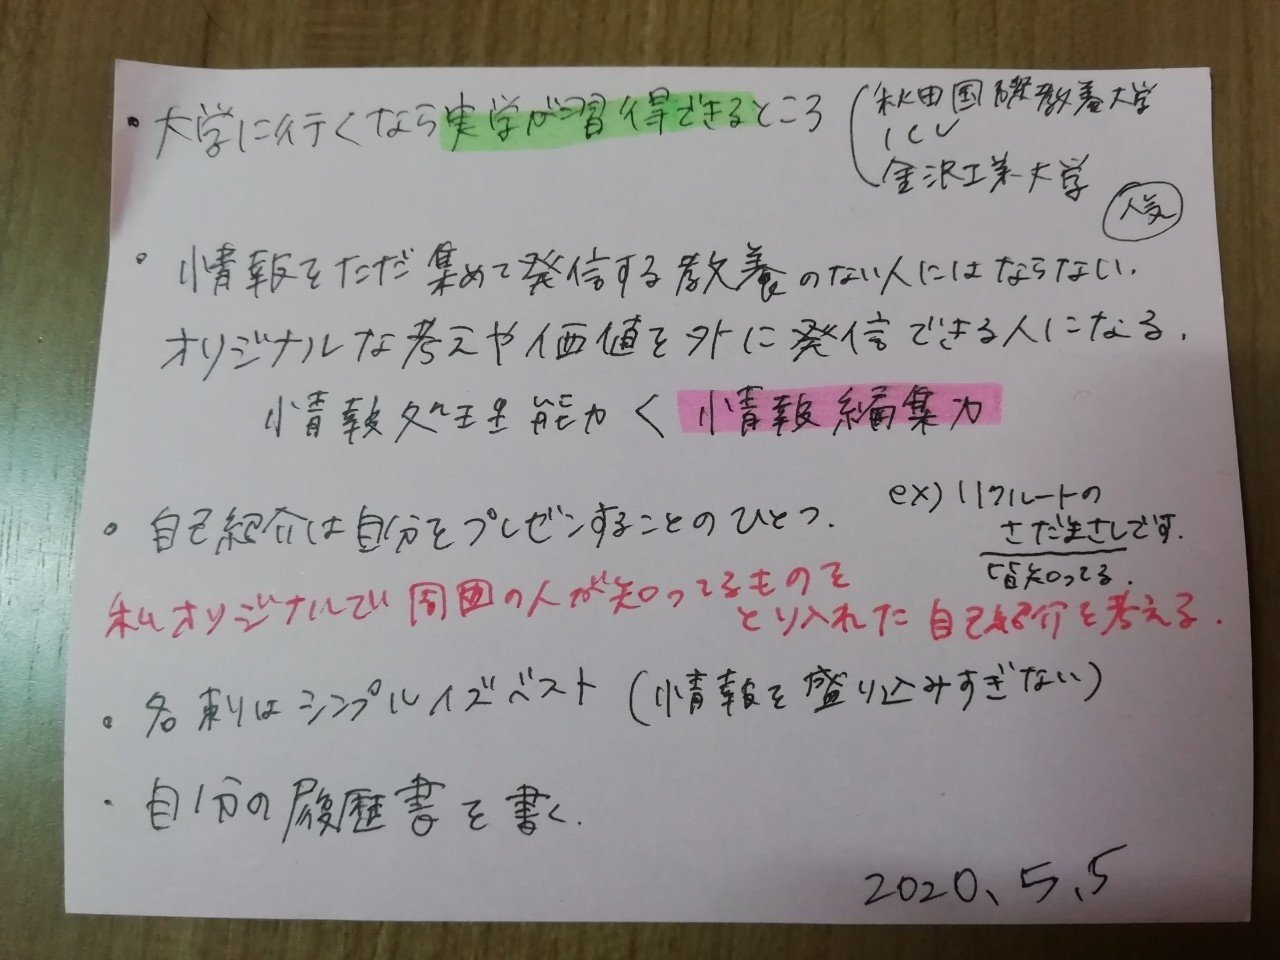 ・大学に行くなら実学が習得できるところ
秋田国際教養大学
ICU
金沢工業大学
人気
・情報をただ集めて発信する教養のない人にはならない.
オリジナルな考えや価値を外に発信できる人になる.
情報処理能力 < 情報編集力
・自己紹介は自分をプレゼンすることのひとつ.
ex) リクルートの
さだまさしです.
皆知ってる.
私オリジナルで周囲の人が知ってるものを
とり入れた自己紹介を考える.
・名刺はシンプルイズベスト (情報を盛り込みすぎない)
・自分の履歴書を書く.
2020、5、5